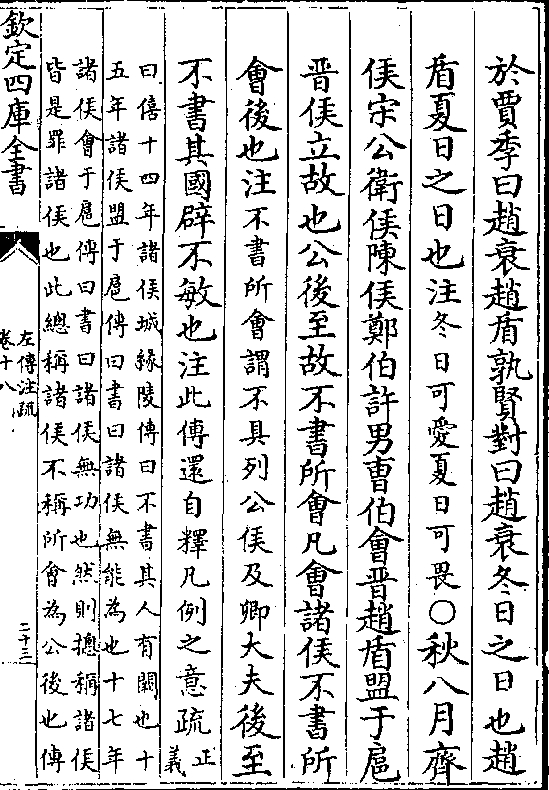 於賈季曰趙衰趙盾孰賢對曰趙衰冬日之日也趙
盾夏日之日也注冬日可愛夏日可畏○秋八月齊
侯宋公衛侯陳侯鄭伯許男曹伯會晋趙盾盟于扈
晋侯立故也公後至故不書所會凡會諸侯不書所
會後也注不書所會謂不具列公侯及卿大夫後至
不書其國辟不敏也注此傳還自釋凡例之意疏正義
曰僖十四年諸侯城緣陵傳曰不書其人有闕也十
五年諸侯盟于扈傳曰書曰諸侯無能為也十七年
諸侯會于扈傳曰書曰諸侯無功也然則摠稱諸侯
皆是罪諸侯也此總稱諸侯不稱所會為公後也傳
欽定四庫全書
左傳注疏
卷十八
二十三